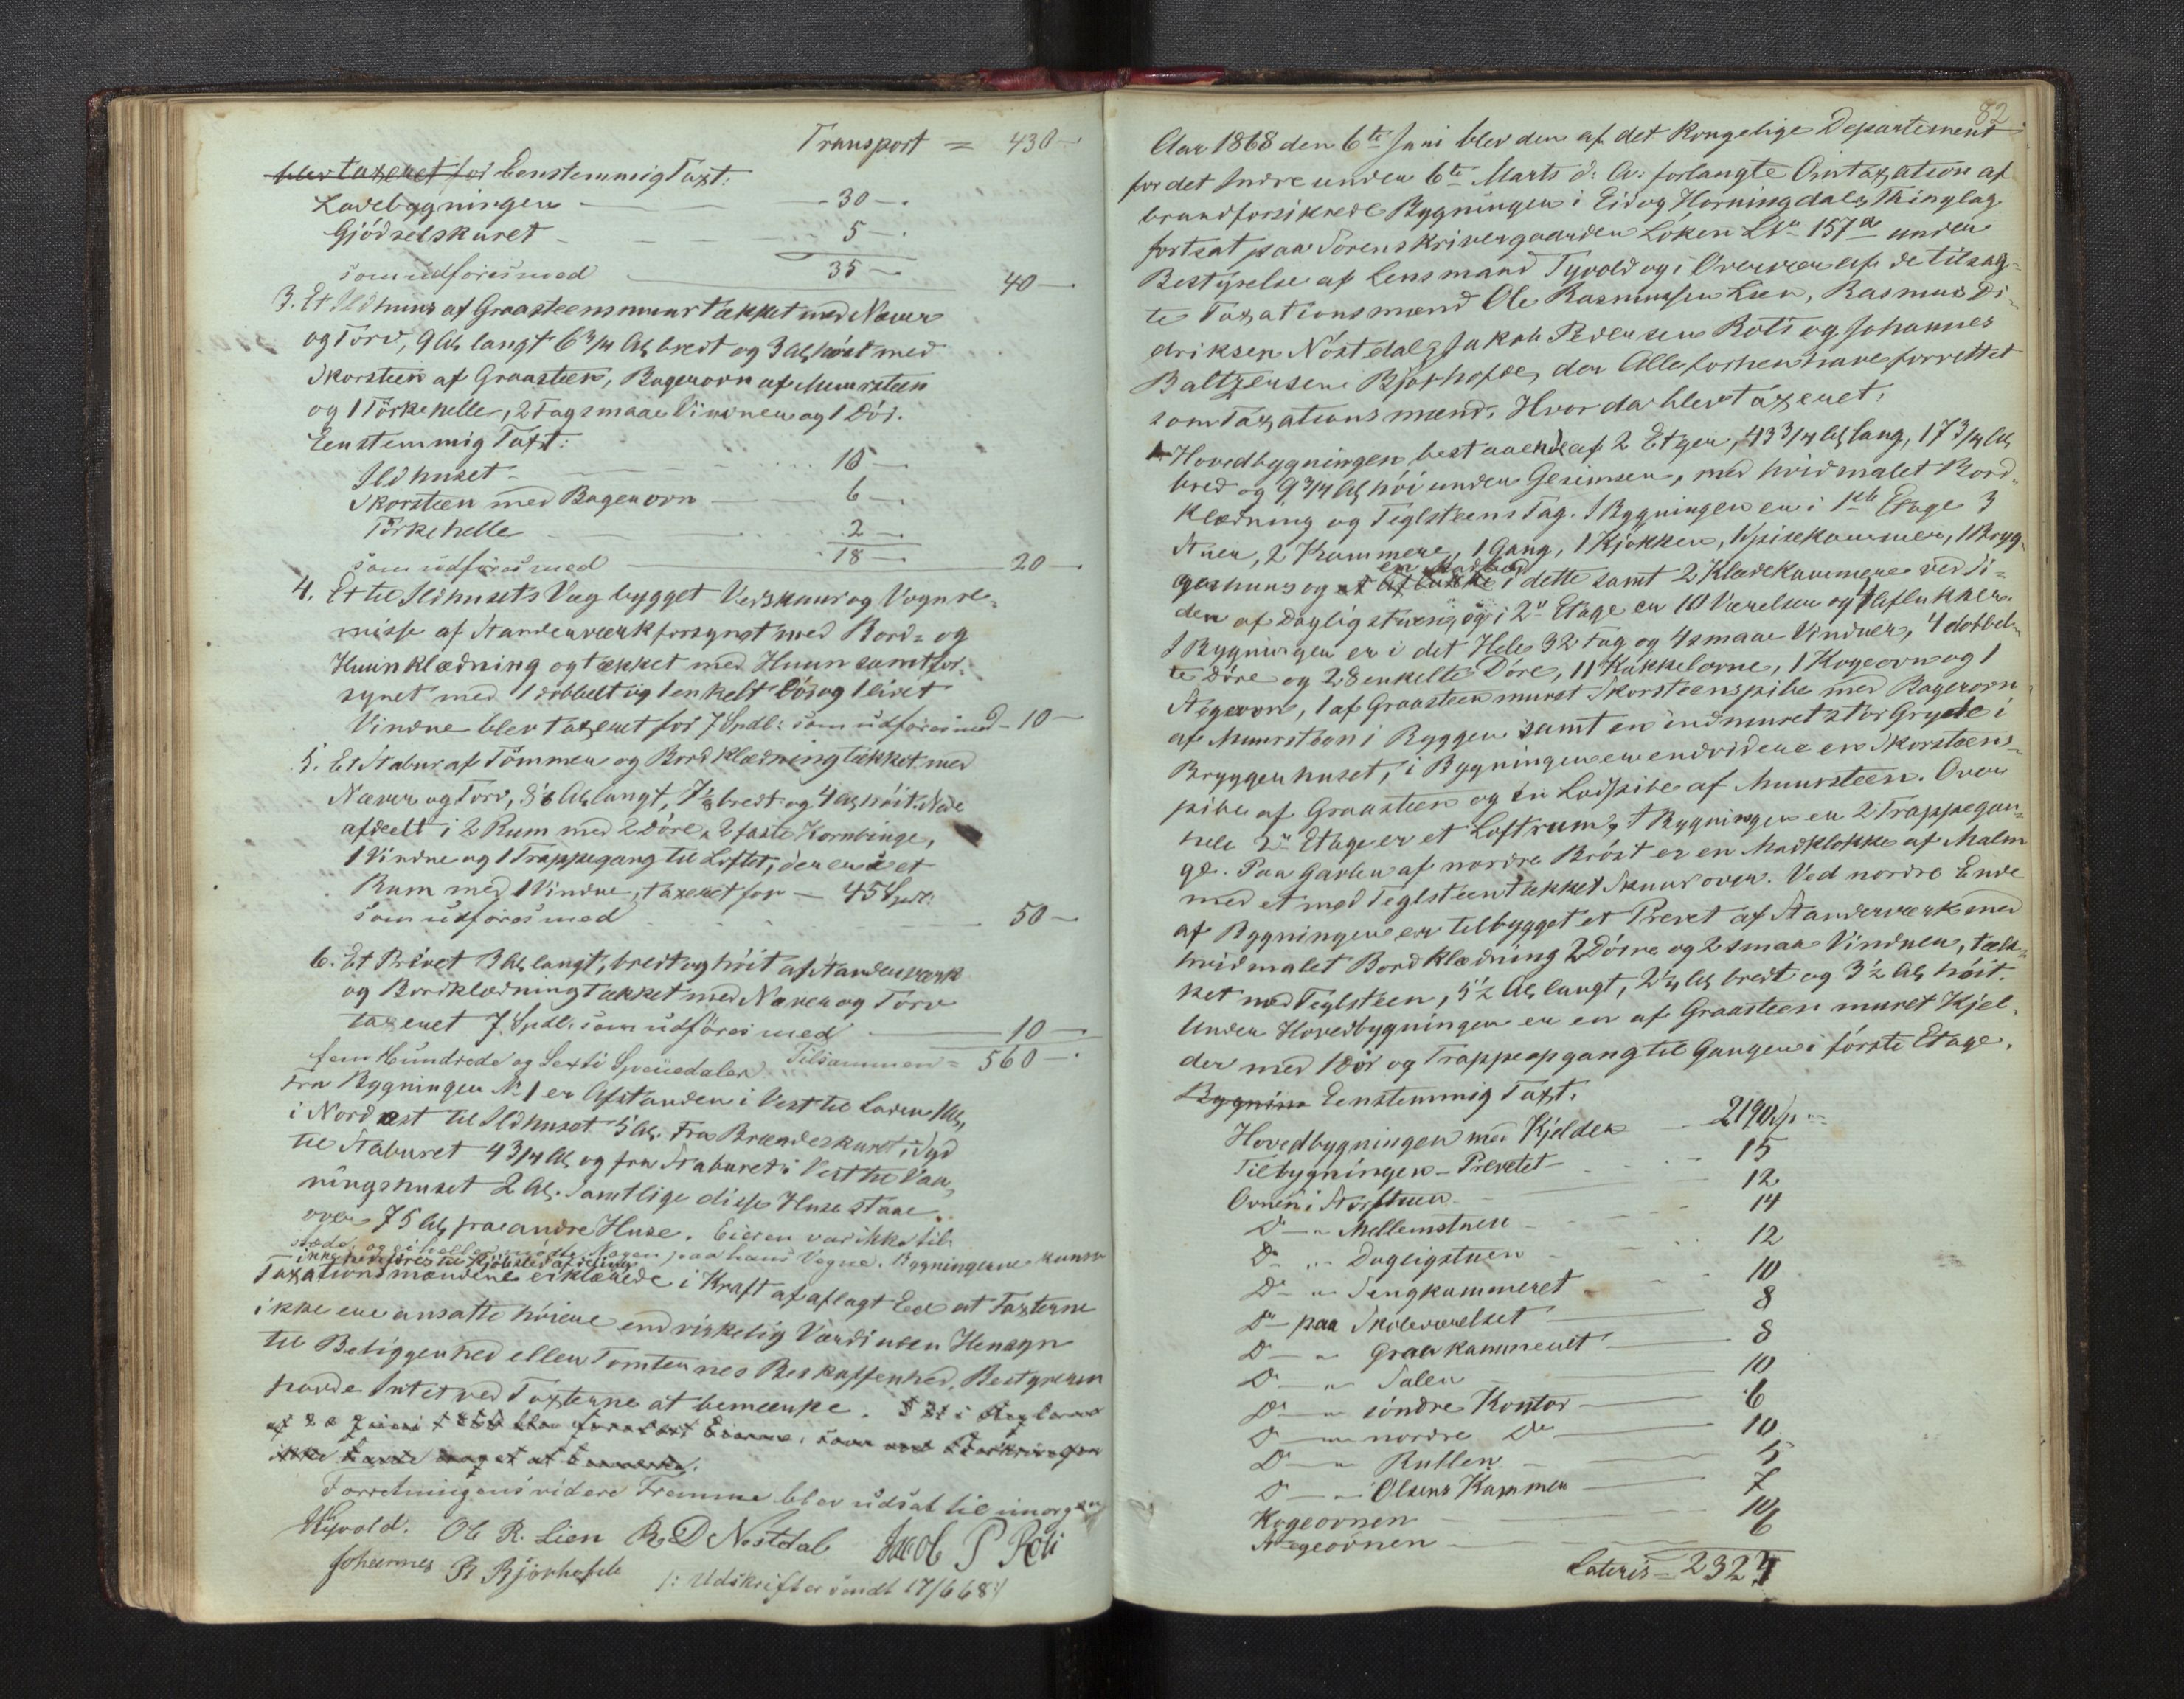 Transport = 430 —
blev taxeret for Eenstemmig Taxt:
Ladebygningen — 30 —
Gjödselskuret — 5 —
35 —
som udföres med — 40 —
3. Et Ildhuus af Graasteensmuur tækket med Næver
og Torv, 9 Al, langt 6 3/4 Al, bredt og 3 Al, höit med
Skorsteen af Graasteen, Bagerovn af Muursteen
og 1 Törkehelle, 2 Fag smaae Vinduer og 1 Dör.
Eenstemmig Taxt:
Ildhuset — 10 —
Skorsteen med Bagerovn — 6 —
Törkehelle — 2 —
18 —
som udföres med — 20 —
4. Et til Ildhusets Væg bygget Vedskuur og Vognre-
misse af Standerværk forsynet med Bord- og
Huunklædning og tækket med Huun samt for-
synet med 1 dobbelt og 1 enkelt Dör og 1 lidet
Vindue blev taxeret for 7 Spdl: som udföres med — 10 —
5. Et Stabur af Tömmer og Bordklædning tækket med
Næver og Torv, 8 1/2 Al, langt, 7 1/2 bredt og 4 Al, höit. Nede
afdeelt i 2 Rum med 2 Döre, 2 faste Kornbinge,
1 Vindue og 1 Trappegang til Loftet, der er i et
Rum med 1 Vindue, taxeret for — 45 Spdl:
som udföres med — 50 —
6. Et Privet 3 Al, langt, bredt og höit af Standerværk
og Bordklædning tækket med Næver og Torv
taxeret 7 Spdl. som udföres med — 10 —
fem Hundrede og Sexti Speciedaler. Tilsammen = 560 —
Fra Bygningen No 1 er Afstanden i Vest til Laden Al,
i Nordost til Ildhuset 5 Al. Fra Brændeskuret i Syd
til Staburet 4 3/4 Al, og fra Staburet i Vest til Vaa-
ningshuset 2 Al. Samtlige disse Huse staae
over 75 Al, fra andre Huse. Eieren var ikke til-
stede og ei heller mödte Nogen paa hans Vegne. Bygningerne kunne
ikke henföres til Kjöbstedafdeling
Taxationsmændene erklærede i Kraft af aflagt Eed at Taxterne
ikke ere ansatte höiere end virkelig Værdi uden Hensyn
til Beliggenhed eller Tomternes Beskaffenhed. Bestyreren
havde Intet ved Taxterne at bemærke.
ikke havde noget at bemærke.
Forretningens videre Fremme blev udsat til imorgen
Tyvold. Ole R. Lien R. D Nostdal Jacob P Roti
Johannes B Bjorhofde /: Udskrift er sendt 17/6 68 :/
82
Aar 1868 den 6te Juni blev den af det Kongelige Departement
for det Indre under 6te Marts d: A: forlangte Omtaxation af
brandforsikrede Bygninger i Eid og Horningdals Thinglag
fortsat paa Sorenskrivergaarden Löken LNo 157a under
Bestyrelse af Lensmand Tyvold og i Overvær af de tilsag-
te Taxationsmænd Ole Rasmussen Lien, Rasmus Di-
driksen Nöstdal, Jakob Pedersen Roti og Johannes
Baltzersen Bjorhofde, der Alle forhen have forrettet
som Taxationsmænd. Hvor da blev taxeret:
1. Hovedbygningen bestaaende af 2 Etager, 43 3/4 Al, lang, 17 3/4 Al,
bred og 9 3/4 Al, höi under Gesimsen, med hvidmalet Bord-
klædning og Teglsteens Tag. I Bygningen er i 1ste Etage 3
Stuer, 2 Kammere, 1 Gang, 1 Kjökken, 1 Spisekammer, 1 Bryg-
gerhuus og et Aflukke i dette samt 2 Klædekammere ved Si-
den af Dagligstuen, og i 2n Etage er 10 Værelser og 1 Aflukker.
I Bygningen er i det Hele 32 Fag og 4 smaae Vinduer, 4 dobbel-
te Döre og 28 enkelte Döre, 11 Kakkelovne, 1 Kogeovn og 1
Stegeovn, 1 af Graasteen muret Skorsteenspibe med Bagerovn
af Muursteen i Bryggen samt en indmuret stor Gryde i
Bryggerhuset, i Bygningen er endvidere en Skorsteens-
pibe af Graasteen og en Lodpibe af Muursteen. Over
hele 2n Etage er et Loftrum, I Bygningen er 2 Trappegan-
ge. Paa Gavlen af nordre Bröst er en Madklokke af Malm
med et med Teglsteen tækket Skuur over. Ved nordre Ende
af Bygningen er tilbygget et Privet af Standerværk med
hvidmalet Bordklædning 2 Döre og 2 smaa Vinduer, tæk-
ket med Teglsteen, 5 1/2 Al, langt, 2 1/4 Al, bredt og 3 1/2 Al, höit.
Under Hovedbygningen er en af Graasteen muret Kjel-
der med 1 Dör og Trappeopgang til Gangen i förste Etage.
Bygnin Eenstemmig Taxt.
Hovedbygningen med Kjelder — 2190 Sp
Tilbygningen — Privetet — 15
Ovnen i Storstuen — 12
Do — " Mellemstuen — 14
Do — " Dagligstuen — 12
Do — " Sengkammeret — 10
Do — paa Skoleværelset — 8
Do — " Graakammeret — 8
Do — " Salen — 10
Do — " söndre Kontor — 6
Do — " nordre Do — 10
Do — " Rullen — 5
Do — " Olsens Kammer — 7
Kogeovnen — 10
Stegeovnen — 6
Lateris = 2323